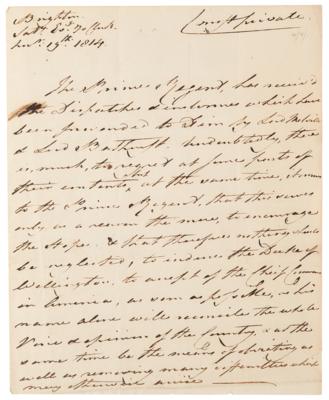 Brighton
Novr. 19th. 1814.
Most private.
The Prince Regent, has received
the Dispatches & enclosures which have
been forwarded to Him by Lord Melville
& Lord Bathurst. Undoubtedly, there
is, much, to regret at some parts of
their contents, at the same time, it seems
to the Prince Regent, that this serves
only as a reason the more, to encourage
the Hope & that therefore nothing should
be neglected, to induce the Duke of
Wellington, to accept of the Chief command
in America, as soon as possible, as his
name alone will reconcile the whole
Voice & opinion of the Country, & at the
same time be the means of obviating as
well as removing many difficulties which
may otherwise arise